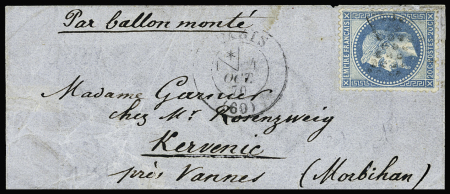 Par ballon monté
PARIS
OCT.
70
(60)
EMPIRE FRANÇAIS
20 C POSTES 20 C
Madame Garnier
chez Mr Rosenzweig
Kervenic
près Vannes (Morbihan)